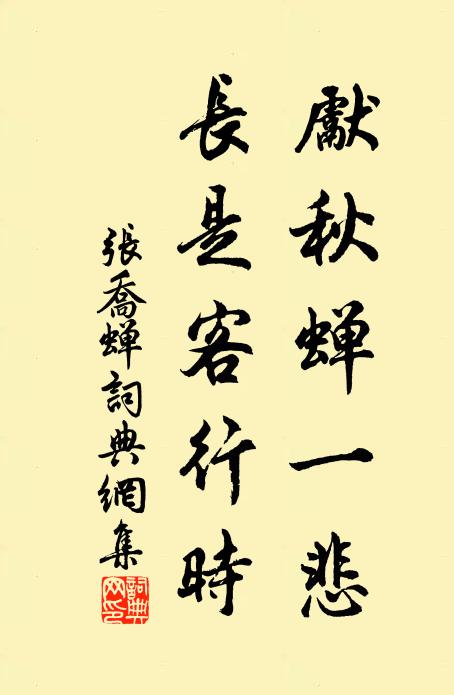 獻秋蝉一悲
長是客行時
張喬蝉詞典網集
詞典网印